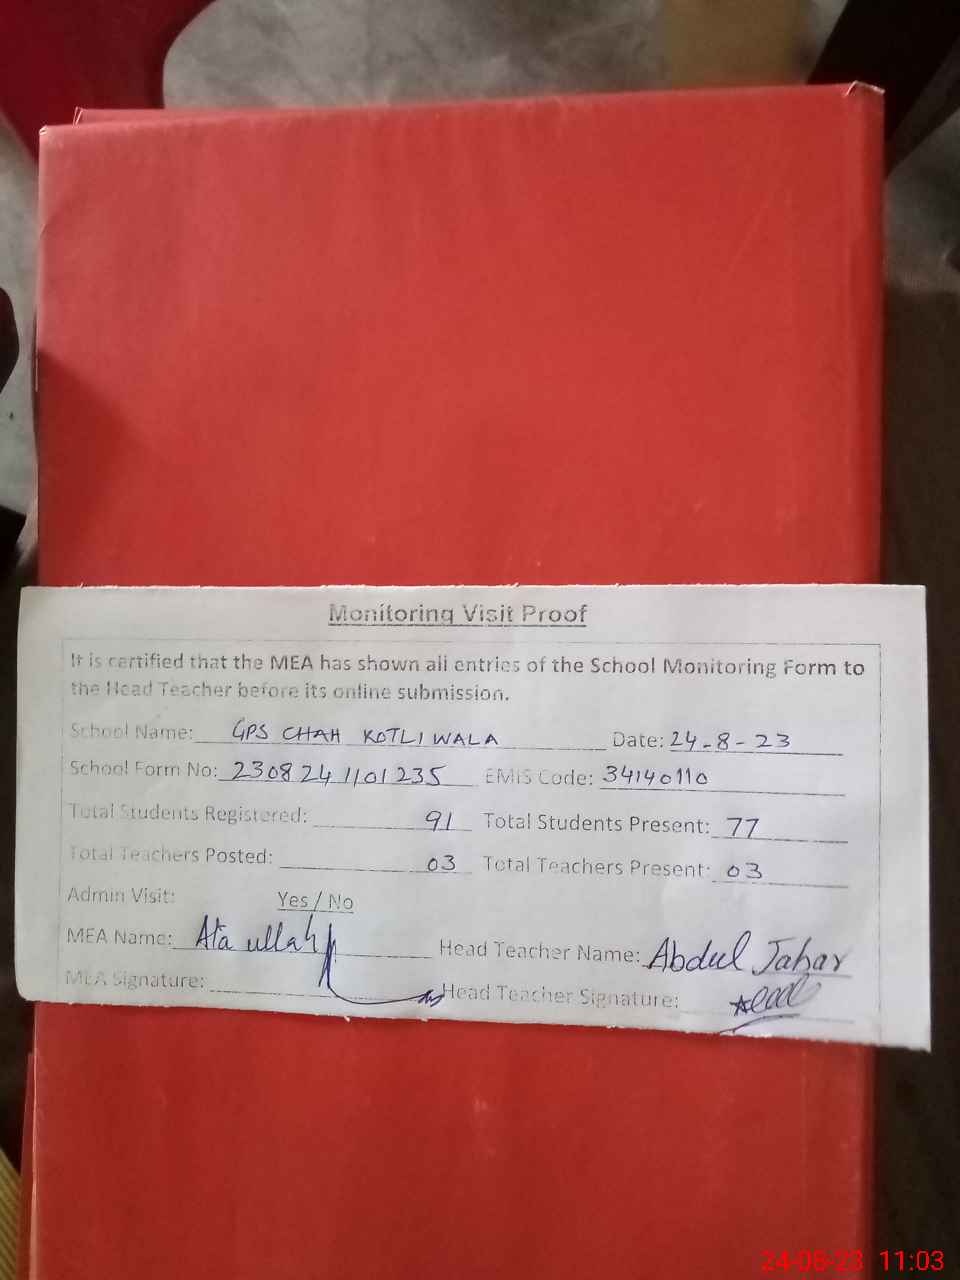 Monitoring Visit Proof
It is certified that the MEA has shown all entries of the School Monitoring Form to
the Head Teacher before its online submission.
School Name: GPS CHAH KOTLI WALA Date: 24-8-23
School Form No: 230824 1101235 EMIS Code: 34140110
Total Students Registered: 91 Total Students Present: 77
Total Teachers Posted: 03 Total Teachers Present: 03
Admin Visit: Yes / No
MEA Name: Ata ullah Head Teacher Name: Abdul Jabar
MEA Signature: Head Teacher Signature:
24-08-23 11:03